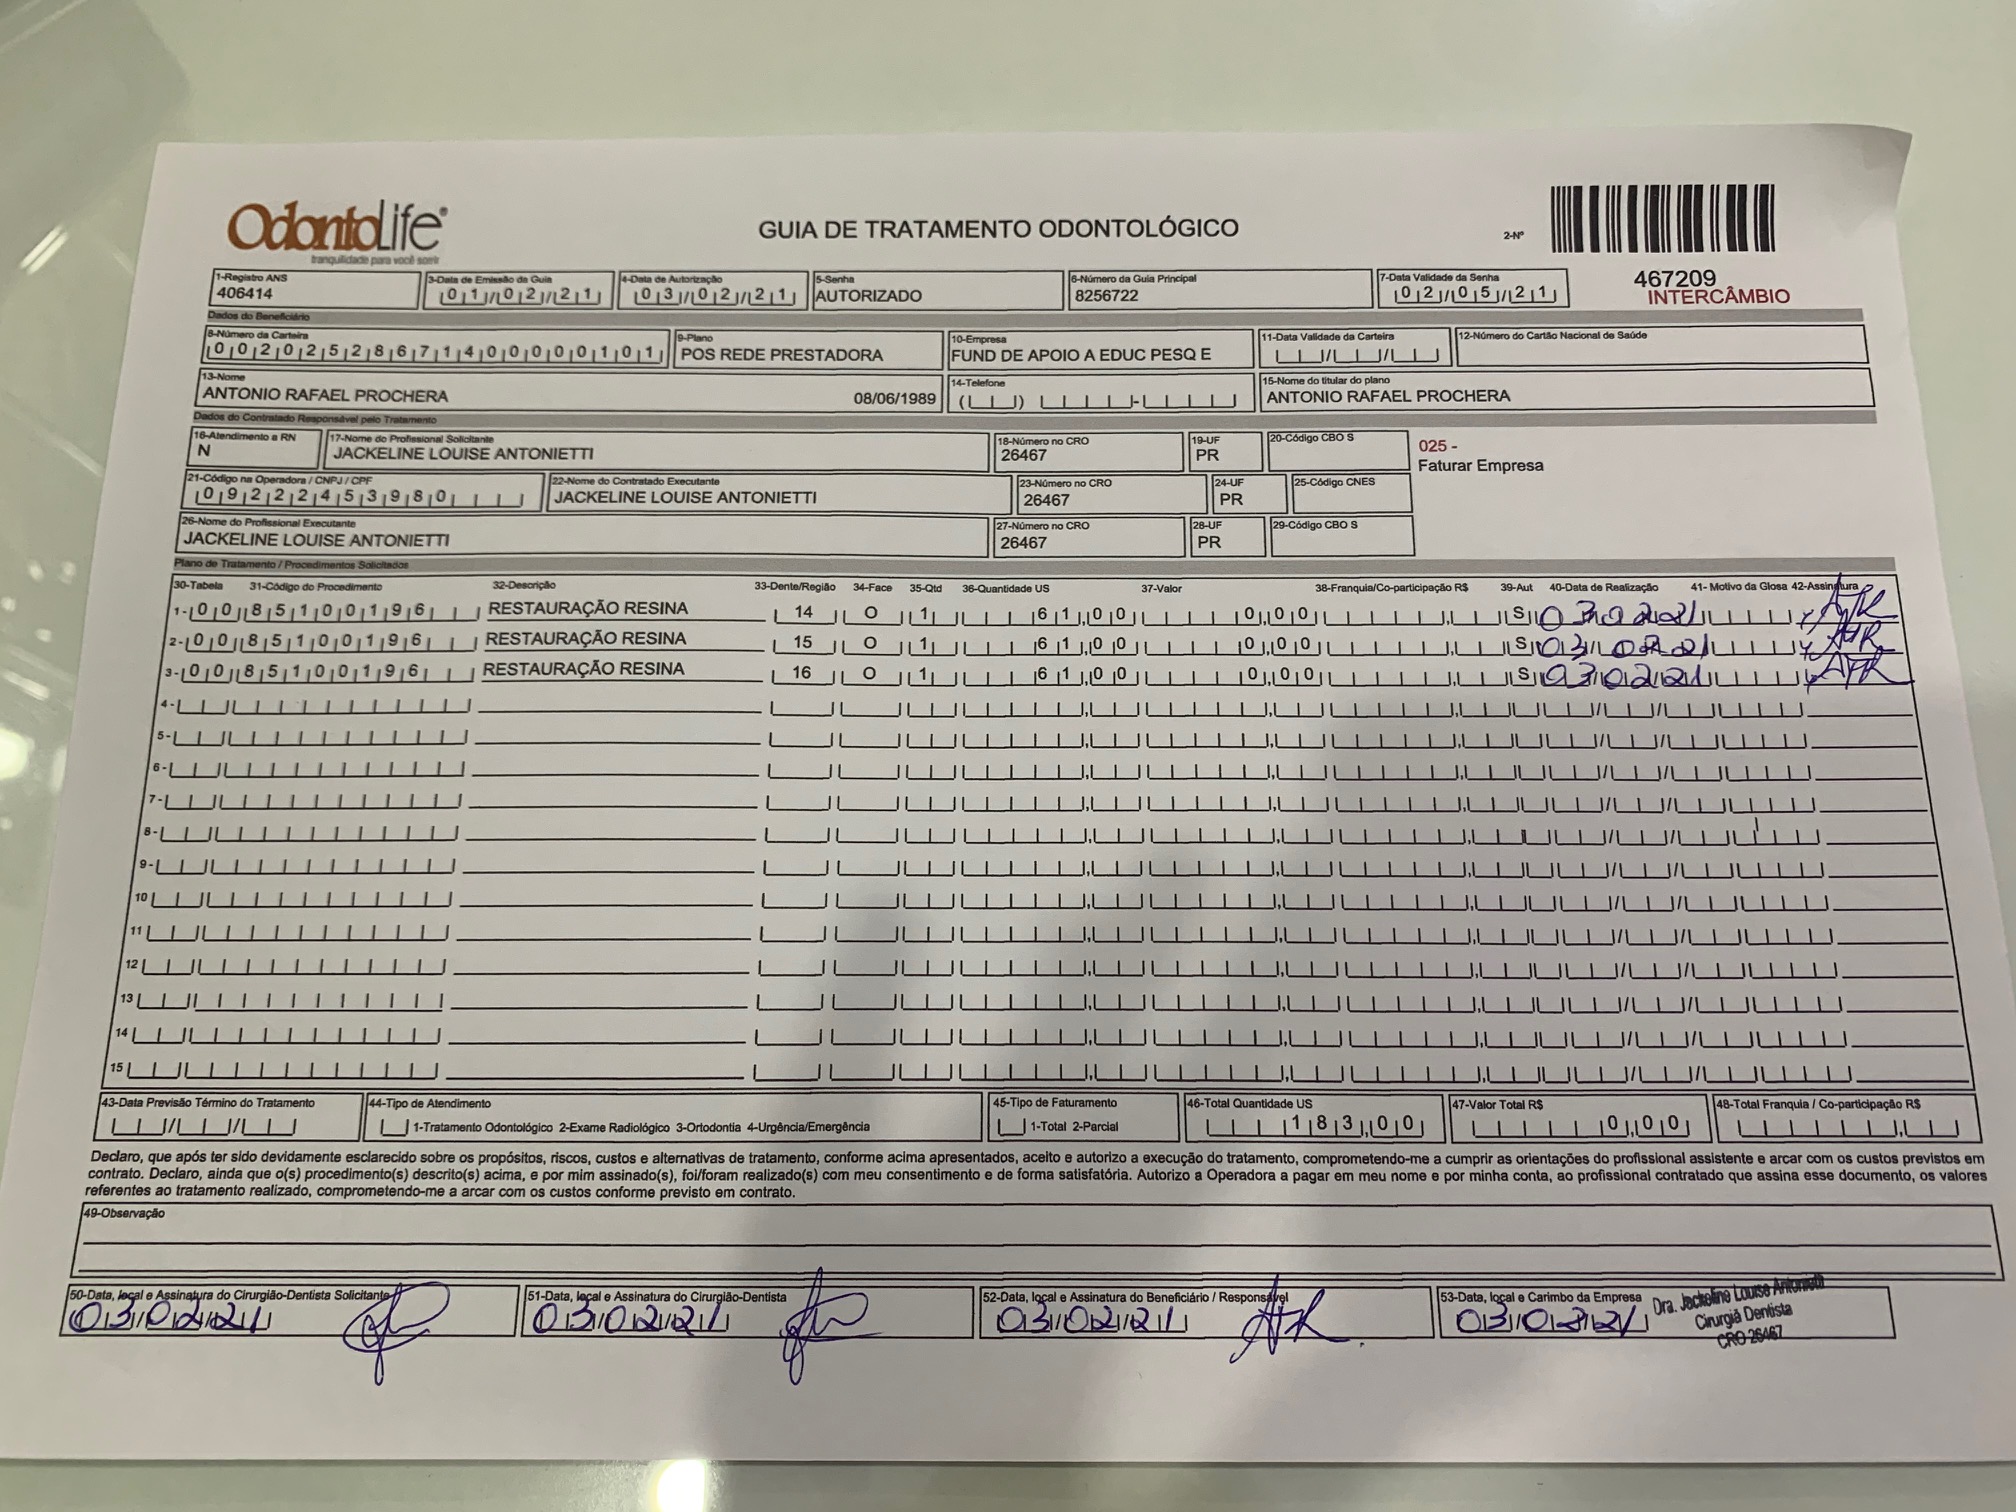 OdontoLife®
tranquilidade para você sorrir
GUIA DE TRATAMENTO ODONTOLÓGICO
2-Nº
467209
INTERCÂMBIO
1-Registro ANS 3-Data de Emissão da Guia 4-Data de Autorização 5-Senha 6-Número da Guia Principal 7-Data Validade da Senha
406414 01/02/21 03/02/21 AUTORIZADO 8256722 02/05/21
Dados do Beneficiário
8-Número da Carteira 9-Plano 10-Empresa 11-Data Validade da Carteira 12-Número do Cartão Nacional de Saúde
00202528671400000101 POS REDE PRESTADORA FUND DE APOIO A EDUC PESQ E
13-Nome 14-Telefone 15-Nome do titular do plano
ANTONIO RAFAEL PROCHERA 08/06/1989 ANTONIO RAFAEL PROCHERA
Dados do Contratado Responsável pelo Tratamento
16-Atendimento a RN 17-Nome do Profissional Solicitante 18-Número no CRO 19-UF 20-Código CBO S
N JACKELINE LOUISE ANTONIETTI 26467 PR
025 -
Faturar Empresa
21-Código na Operadora / CNPJ / CPF 22-Nome do Contratado Executante 23-Número no CRO 24-UF 25-Código CNES
09222453980 JACKELINE LOUISE ANTONIETTI 26467 PR
26-Nome do Profissional Executante 27-Número no CRO 28-UF 29-Código CBO S
JACKELINE LOUISE ANTONIETTI 26467 PR
Plano de Tratamento / Procedimentos Solicitados
30-Tabela 31-Código do Procedimento 32-Descrição 33-Dente/Região 34-Face 35-Qtd 36-Quantidade US 37-Valor 38-Franquia/Co-participação R$ 39-Aut 40-Data de Realização 41- Motivo da Glosa 42-Assinatura
1- 00 85100196 RESTAURAÇÃO RESINA 14 O 1 61,00 0,00 S 03 02 21
2- 00 85100196 RESTAURAÇÃO RESINA 15 O 1 61,00 0,00 S 03 02 21
3- 00 85100196 RESTAURAÇÃO RESINA 16 O 1 61,00 0,00 S 03 02 21
4-
5-
6-
7-
8-
9-
10
11
12
13
14
15
43-Data Previsão Término do Tratamento 44-Tipo de Atendimento 45-Tipo de Faturamento 46-Total Quantidade US 47-Valor Total R$ 48-Total Franquia / Co-participação R$
1-Tratamento Odontológico 2-Exame Radiológico 3-Ortodontia 4-Urgência/Emergência 1-Total 2-Parcial 183,00 0,00
Declaro, que após ter sido devidamente esclarecido sobre os propósitos, riscos, custos e alternativas de tratamento, conforme acima apresentados, aceito e autorizo a execução do tratamento, comprometendo-me a cumprir as orientações do profissional assistente e arcar com os custos previstos em
contrato. Declaro, ainda que o(s) procedimento(s) descrito(s) acima, e por mim assinado(s), foi/foram realizado(s) com meu consentimento e de forma satisfatória. Autorizo a Operadora a pagar em meu nome e por minha conta, ao profissional contratado que assina esse documento, os valores
referentes ao tratamento realizado, comprometendo-me a arcar com os custos conforme previsto em contrato.
49-Observação
50-Data, local e Assinatura do Cirurgião-Dentista Solicitante 51-Data, local e Assinatura do Cirurgião-Dentista 52-Data, local e Assinatura do Beneficiário / Responsável 53-Data, local e Carimbo da Empresa
03/02/21 03/02/21 03/02/21 03/02/21
Dra. Jackeline Louise Antonietti
Cirurgiã Dentista
CRO 26467